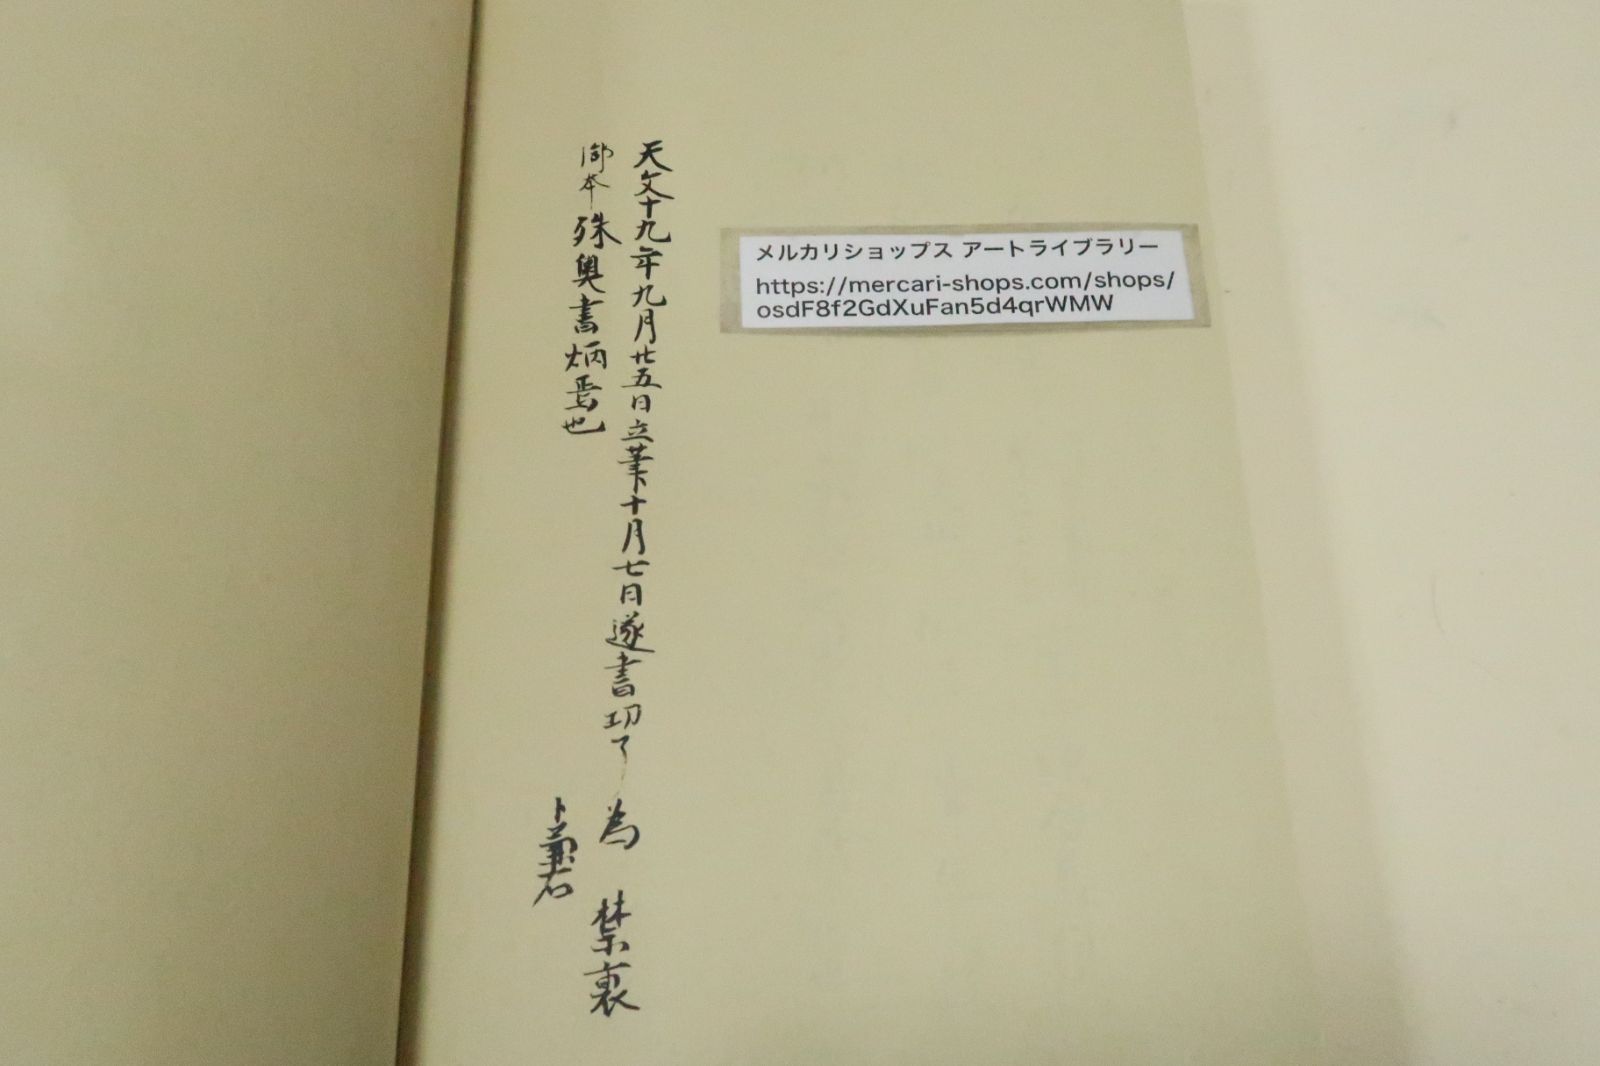 天文十九年九月廿五日立筆十月七日遂書切了為 禁裏
御本殊奥書炳焉也
卜兼右
メルカリショップス アートライブラリー
https://mercari-shops.com/shops/
osdF8f2GdXuFan5d4qrWMW